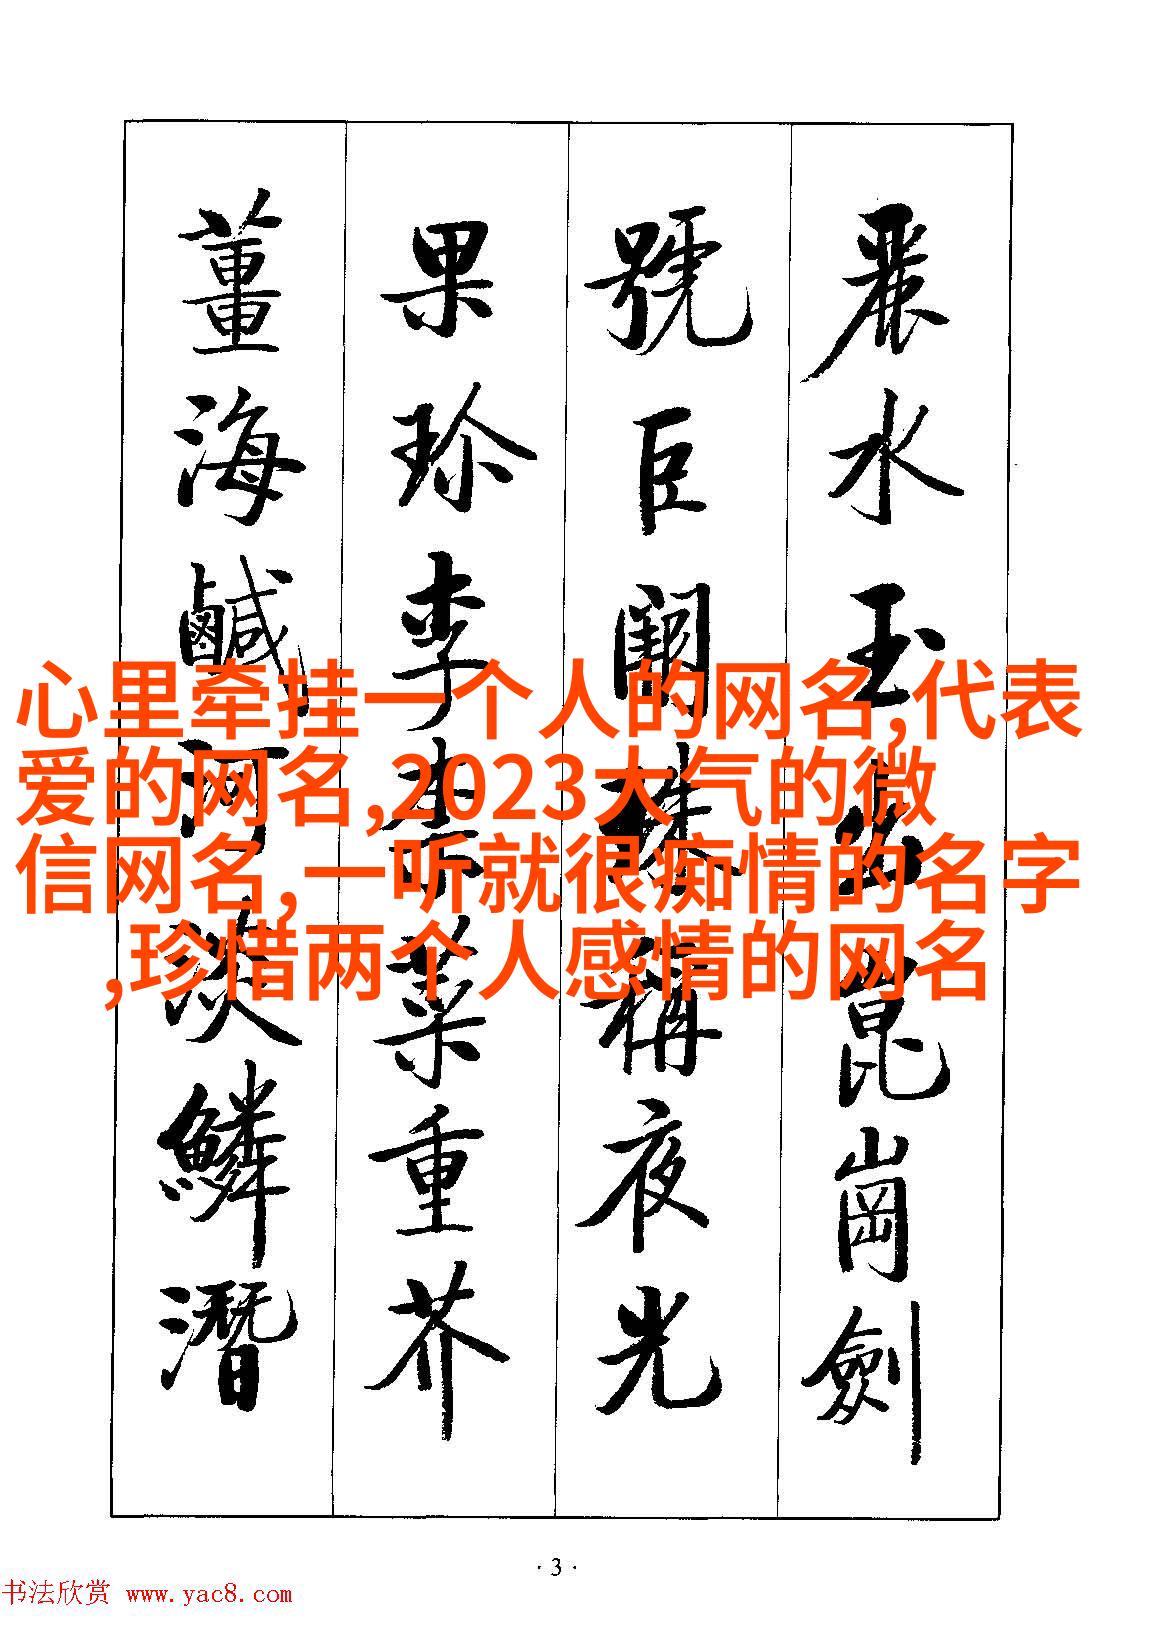 麗水玉出崑崗劍
號巨闕珠稱夜光
果珍李柰菜重芥
薑海鹹河淡鱗潛
心里牵挂一个人的网名,代表
爱的网名,2023大气的微
信网名,一听就很痴情的名字
,珍惜两个人感情的网名
·3·
书法欣赏 www.yac8.com